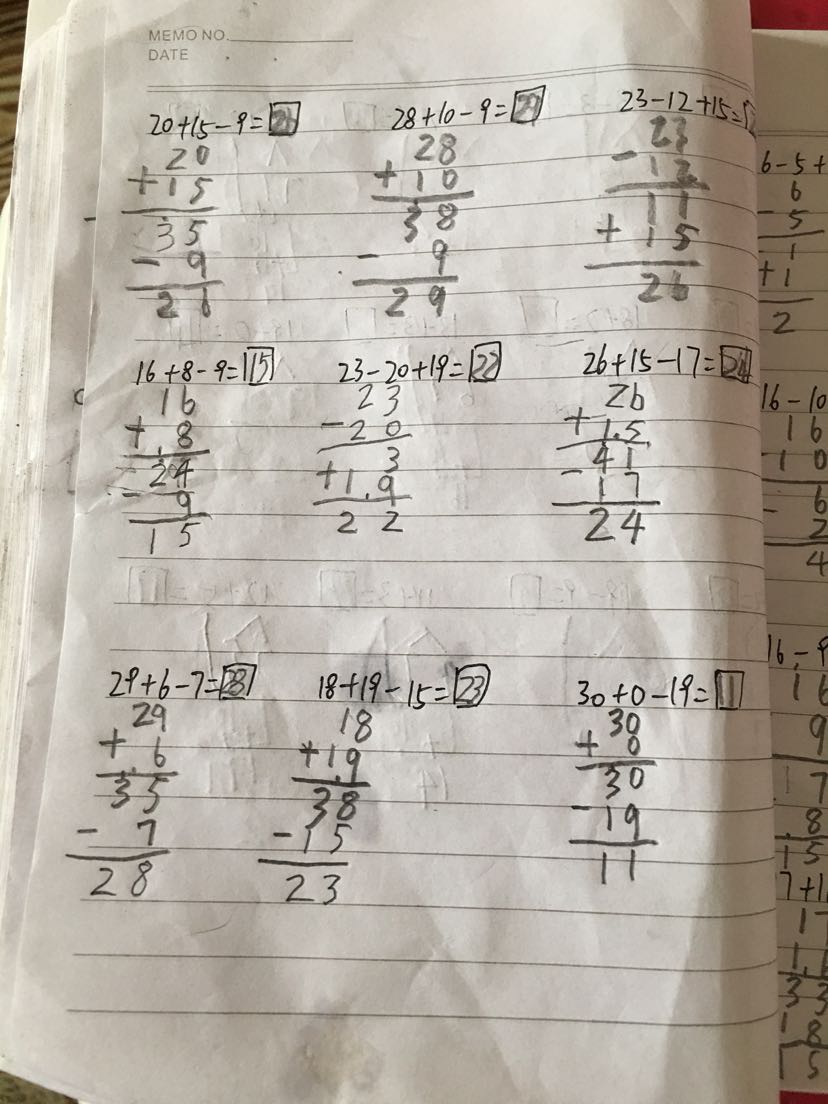 MEMO NO.
DATE
20+15-9=26
20
+15
35
- 9
26
28+10-9=29
28
+10
38
- 9
29
23-12+15=
23
-12
11
+15
26
16+8-9=15
16
+ 8
24
- 9
15
23-20+19=22
23
-20
3
+19
22
26+15-17=24
26
+15
41
-17
24
29+6-7=28
29
+ 6
35
- 7
28
18+19-15=23
18
+19
38
-15
23
30+0-19=11
30
+ 0
30
-19
11
6-5+
6
- 5
1
+1
2
16-10
16
10
6
- 2
4
16-9
16
9
7
8
15
7+1